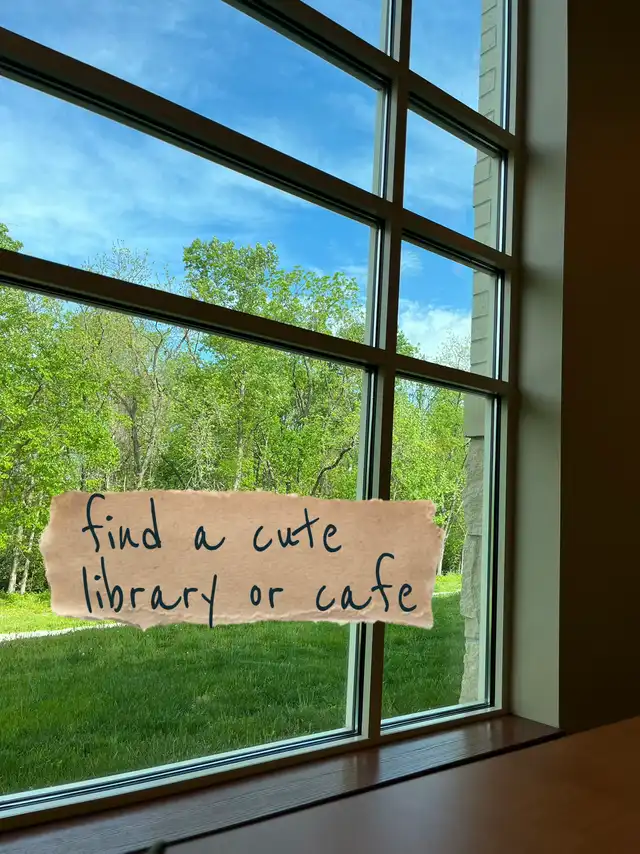 find a cute
library or cafe